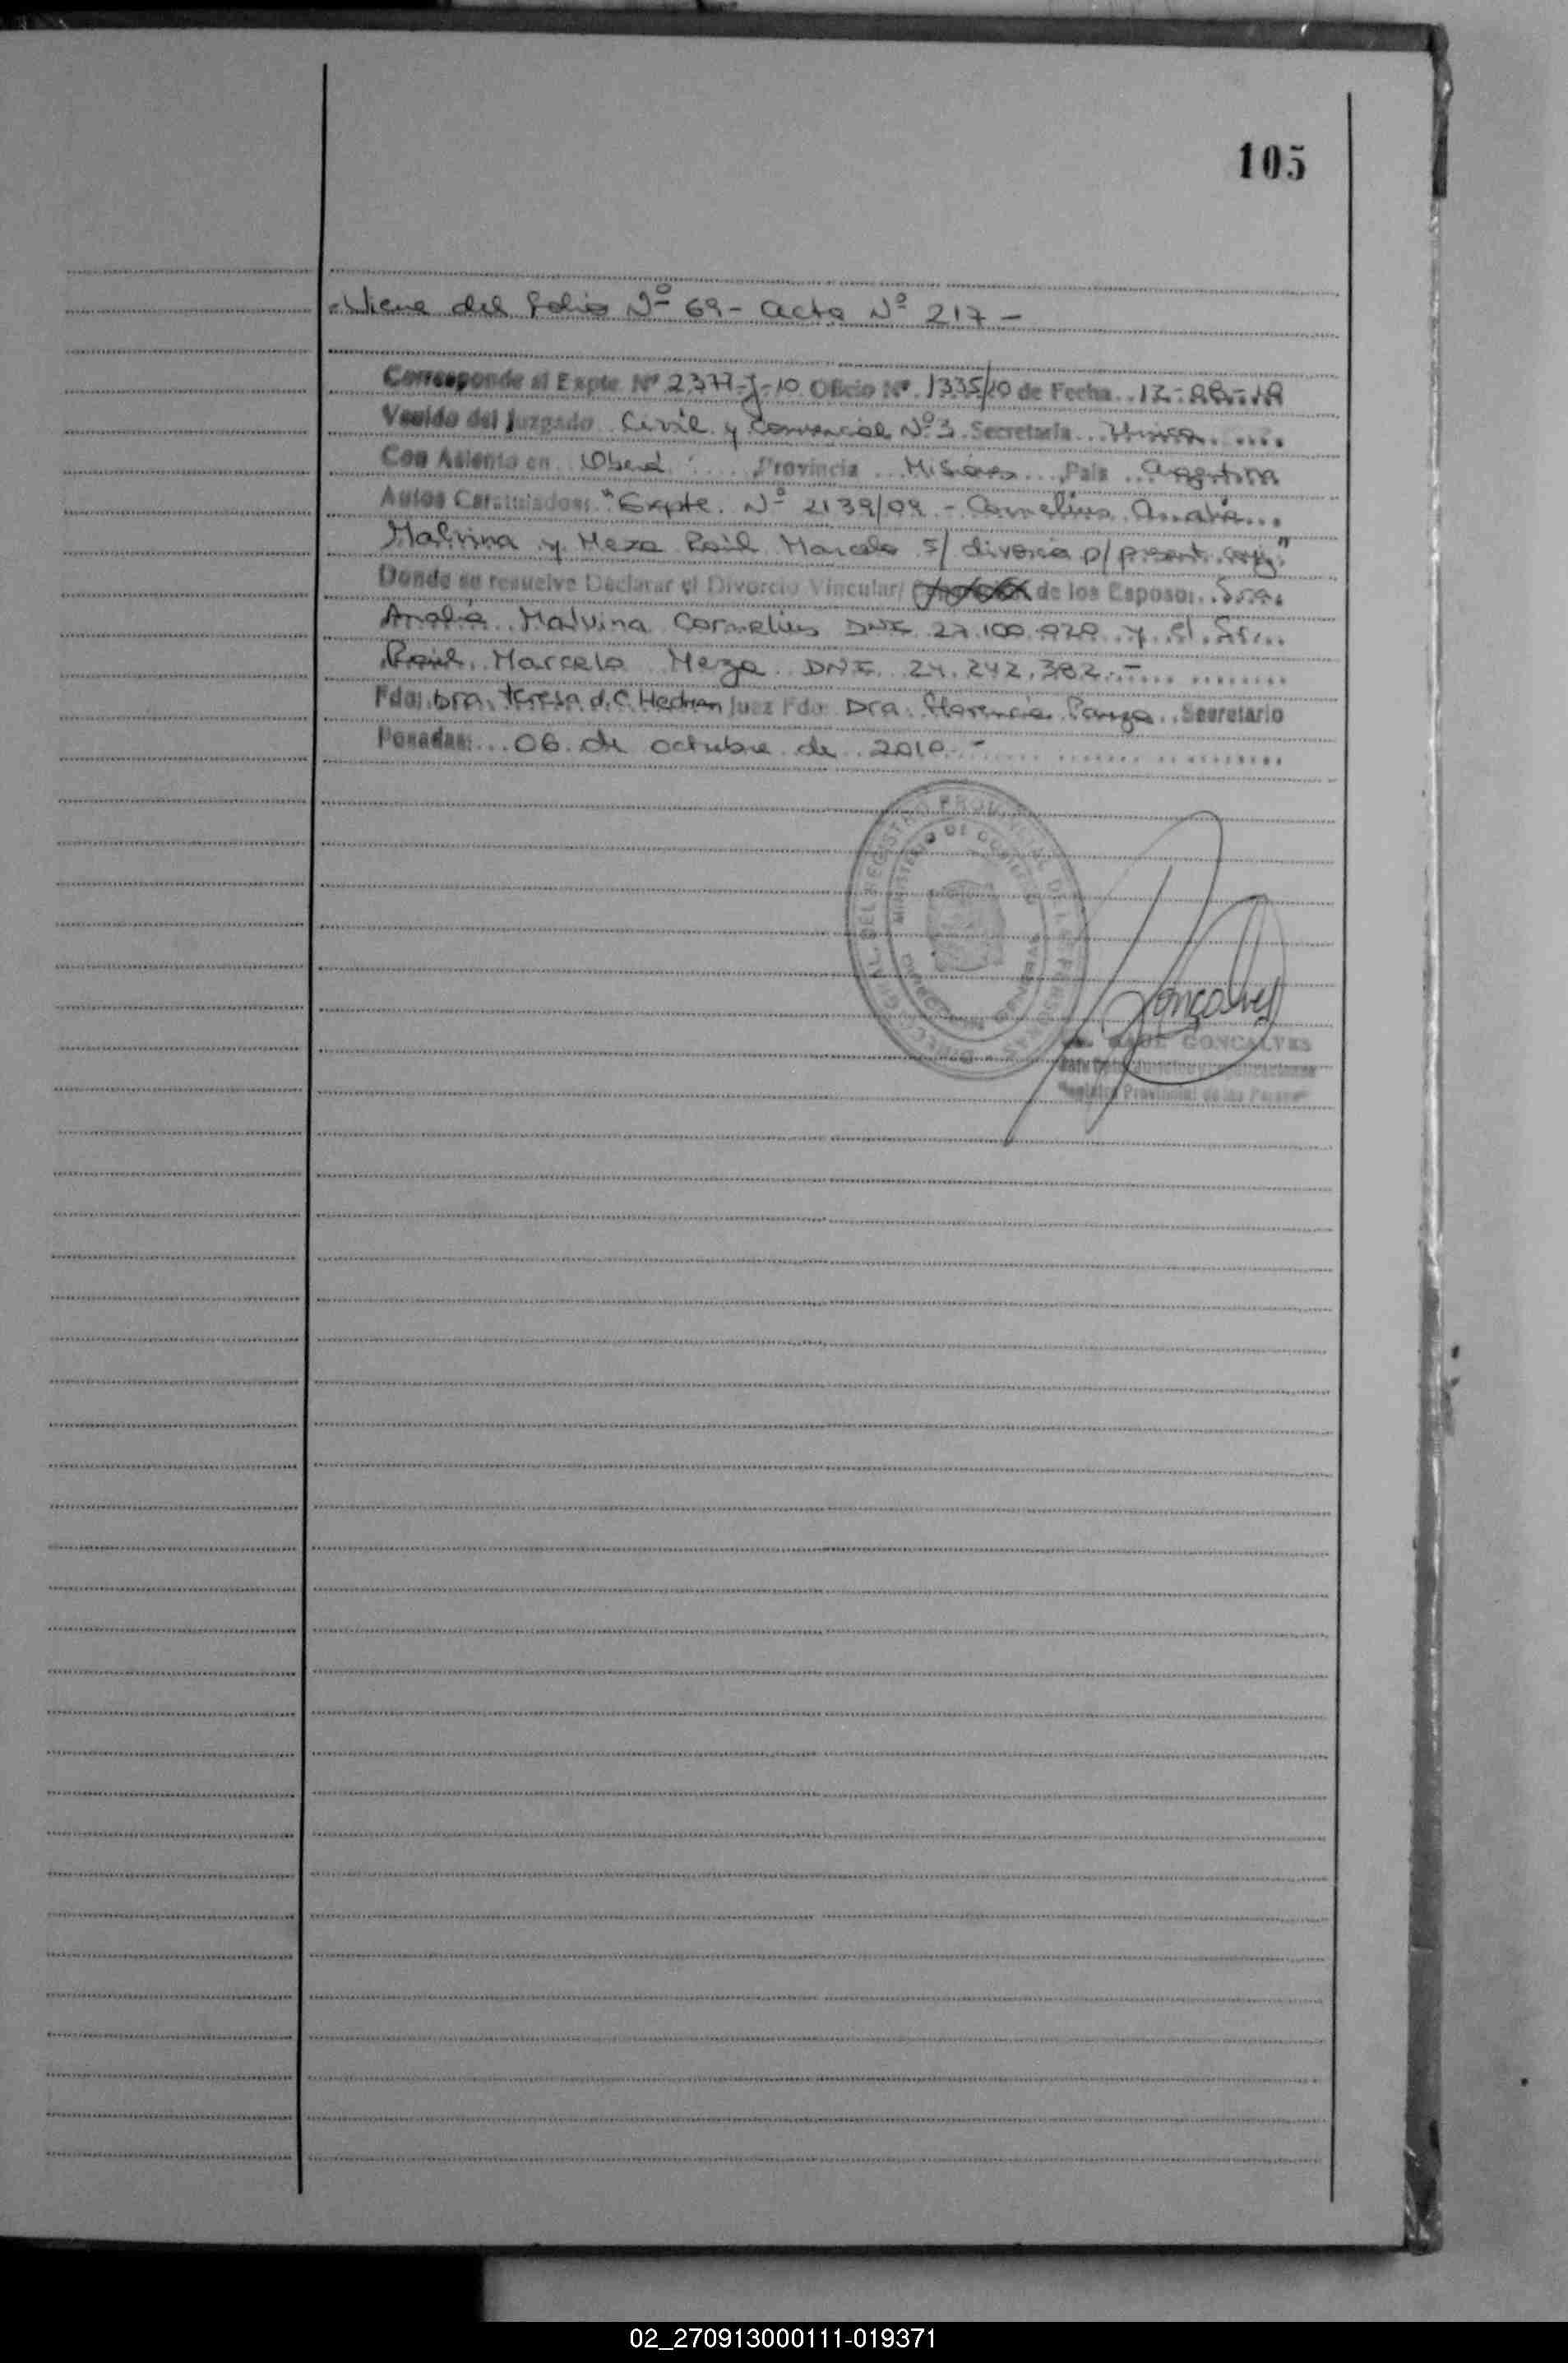 105
Viene del folio Nº 69 - acta Nº 217 -
Corresponde al Expte Nº 2377-J-10 Oficio Nº 1335/10 de Fecha
Venido del Juzgado Civil y Comercial Nº 3 Secretaria Unica
Con Asiento en Oberá Provincia Misiones Pais Argentina
Autos Caratulados: "Expte. Nº 2139/09 - Cornelius Analia
Malvina y Meza Raúl Marcelo s/ divorcio p/ present. conj."
Donde se resuelve Declarar el Divorcio Vincular/ de los Esposos: Sra.
Analia Malvina Cornelius DNI 27.100.929 y el Sr.
Raúl Marcelo Meza DNI 24.242.382.-
Fdo: Dra. Teresa d. C. Hedman Juez Fdo: Dra. Florencia Secretario
Posadas: 06 de octubre de 2010.-
DIRECCION GRAL. DEL REGISTRO PROVINCIAL DE LAS PERSONAS
MINISTERIO DE GOBIERNO
Gonçalves
GONCALVES
Registro Provincial de las Personas
02_270913000111-019371